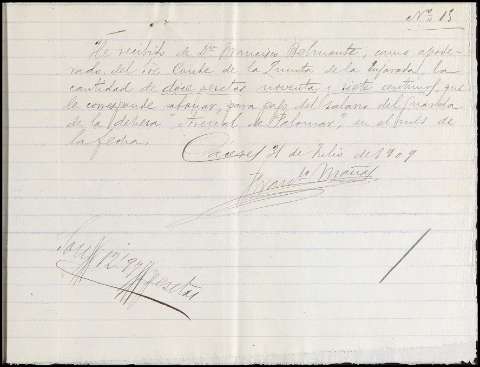 Nº 13
He recibido de Dn Francisco Belmonte, como apode-
rado del Sr. Conde de la Quinta de la Enjarada, la
cantidad de doce pesetas noventa y siete centimos, que
le corresponde abonar, para pago del salario del guarda
de la dehesa "Arenal de Palomar", en el mes de
la fecha.
Caceres 31 de Julio de 1909
Son 12'97 pesetas